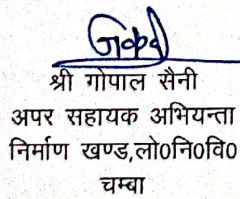 Gopal
श्री गोपाल सैनी
अपर सहायक अभियन्ता
निर्माण खण्ड,लो0नि0वि0
चम्बा